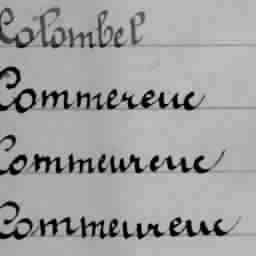 Colombel
Commereuc
Commeureuc
Commeureuc